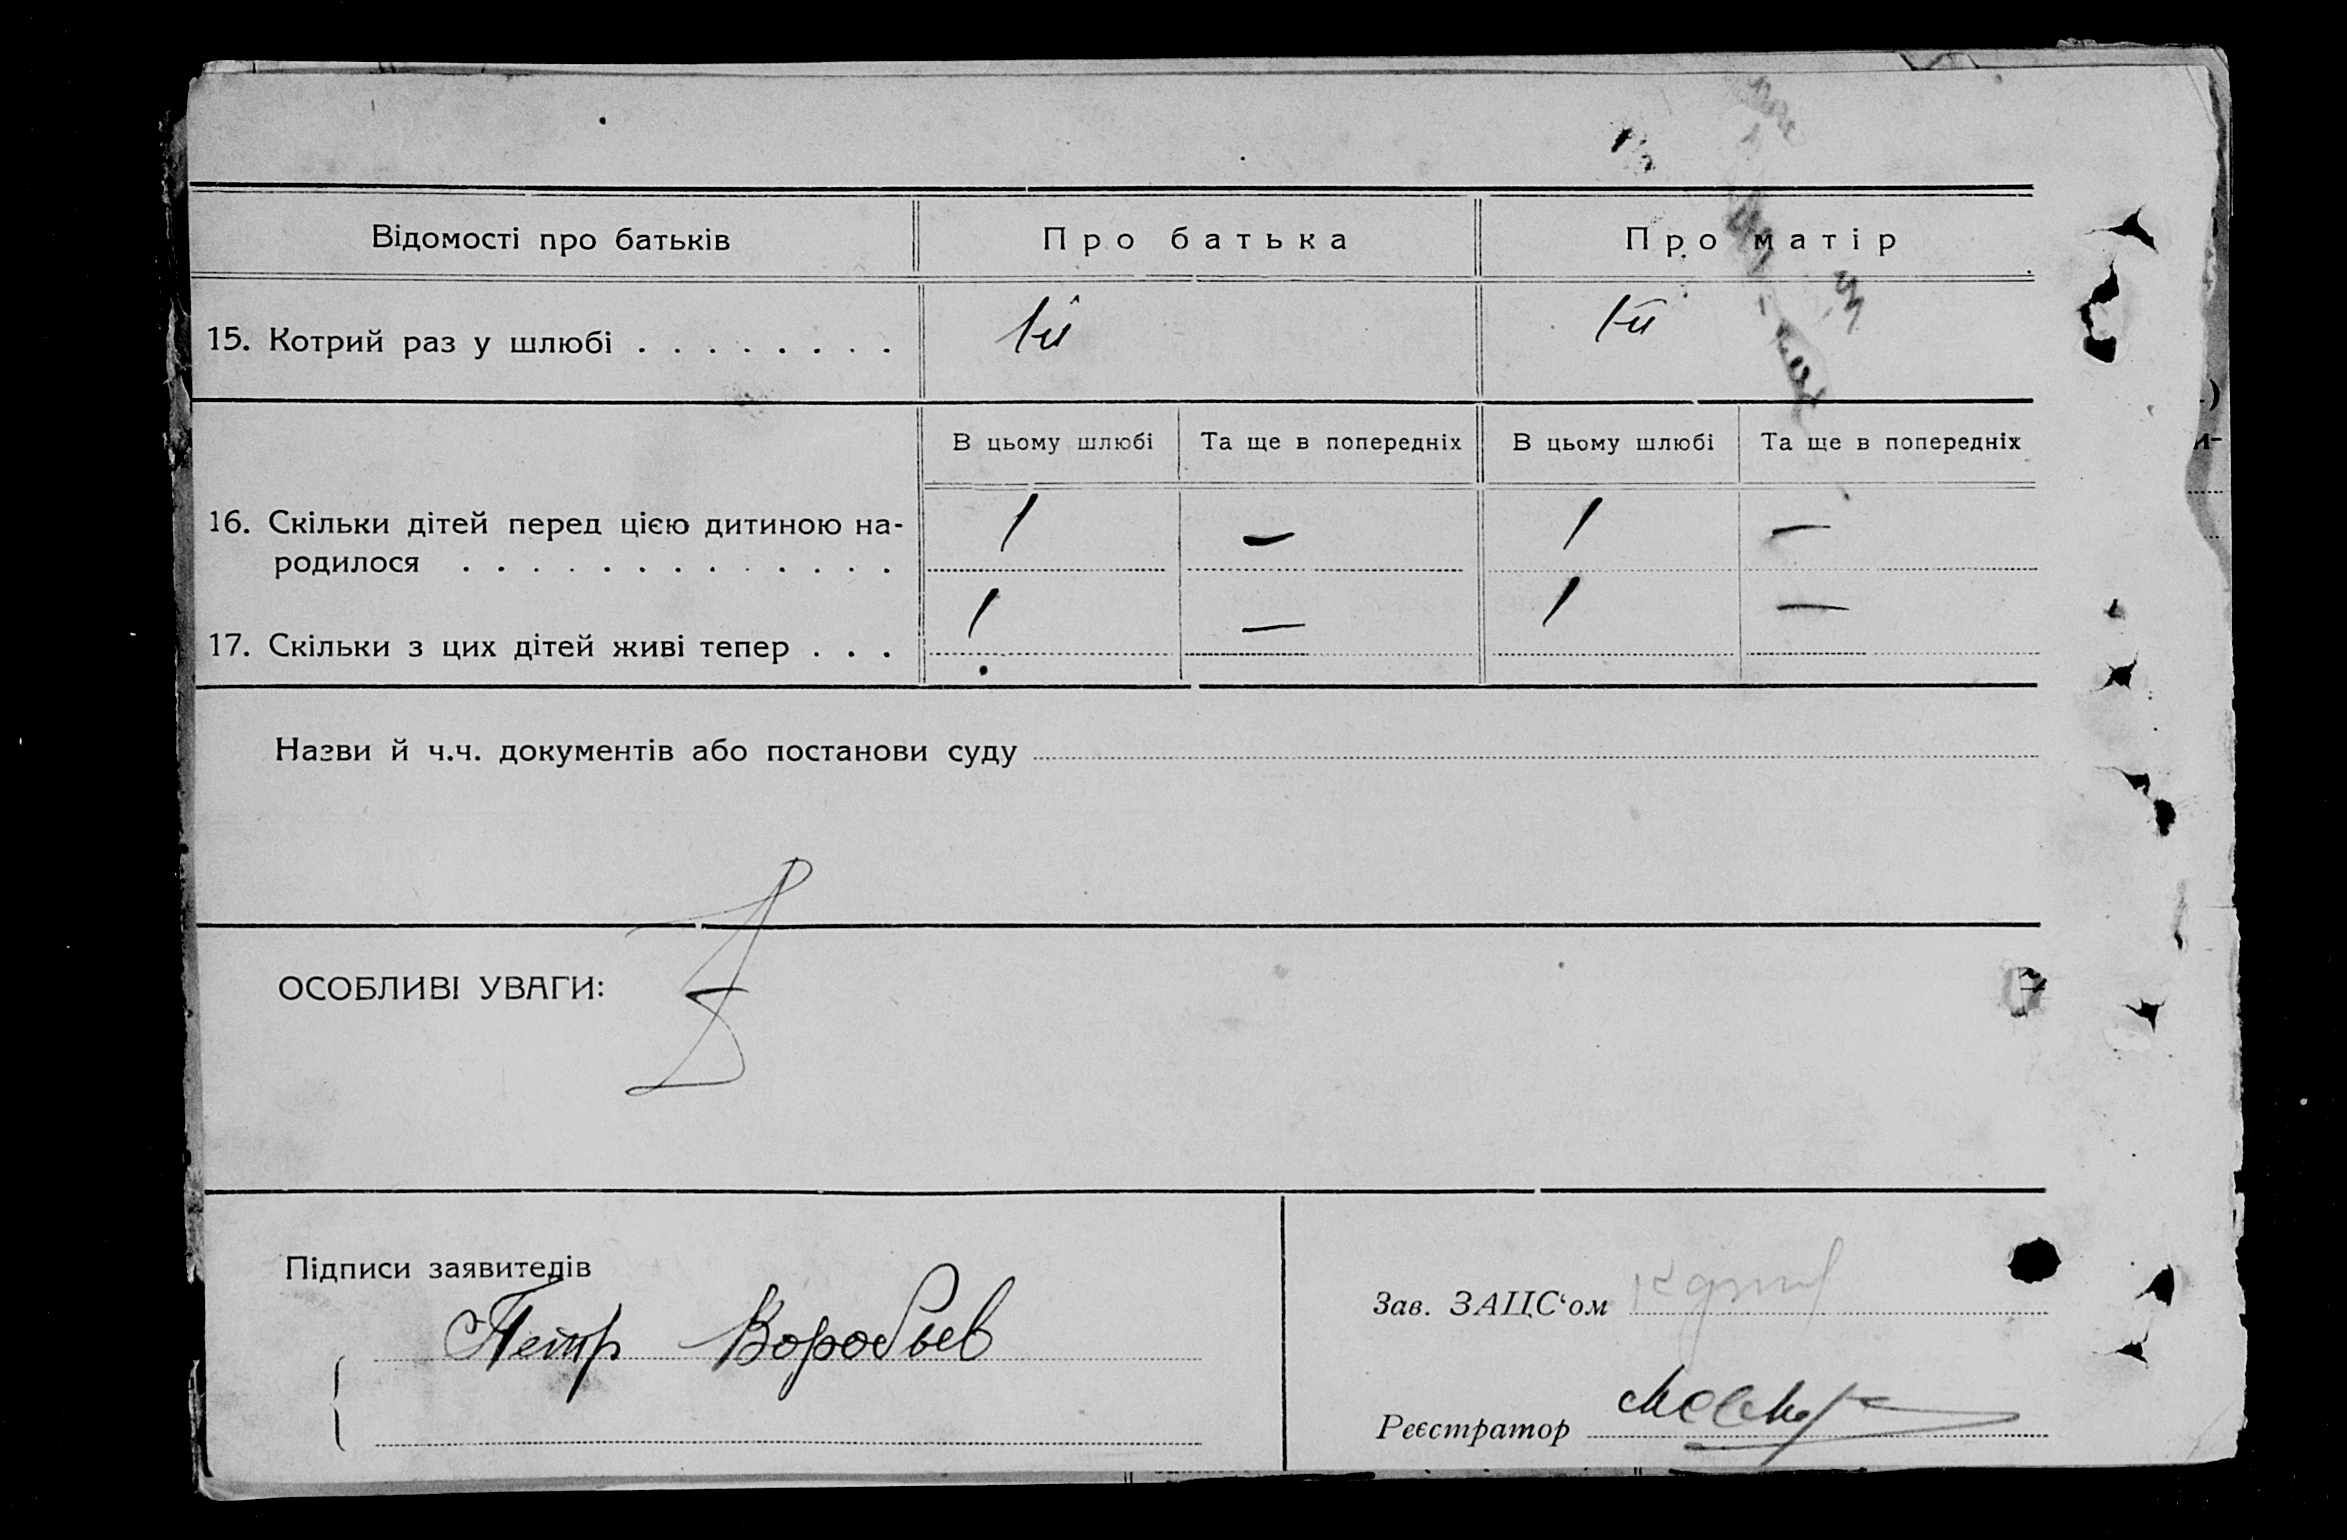 Відомості про батьків Про батька Про матір
15. Котрий раз у шлюбі . . . . . . . . 1-й 1-й
В цьому шлюбі Та ще в попередніх В цьому шлюбі Та ще в попередніх
16. Скільки дітей перед цією дитиною на- 1 — 1 —
родилося . . . . . . . . . . . . .
17. Скільки з цих дітей живі тепер . . . 1 — 1 —
Назви й ч.ч. документів або постанови суду
ОСОБЛИВІ УВАГИ:
Підписи заявителів
Петр Воробьев
Зав. ЗАЦС‘ом
Реєстратор